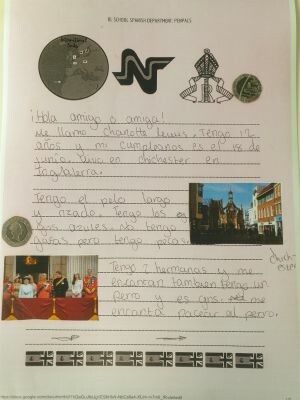 SCHOOL SPANISH DEPARTMENT: PENPALS
¡Hola amigo o amiga!
Me llamo Charlotte Lewis. Tengo 12
años y mi cumpleaños es el 18 de
junio. Vivo en chichester en
Inglaterra.
Tengo el pelo largo
y rizado. Tengo los
ojos azules. No tengo
gafas pero tengo pecas.
chich-
ester
Tengo 2 hermanas y me
encantan tambien tengo un
perro y es gris. me
encanta pacear el perro.